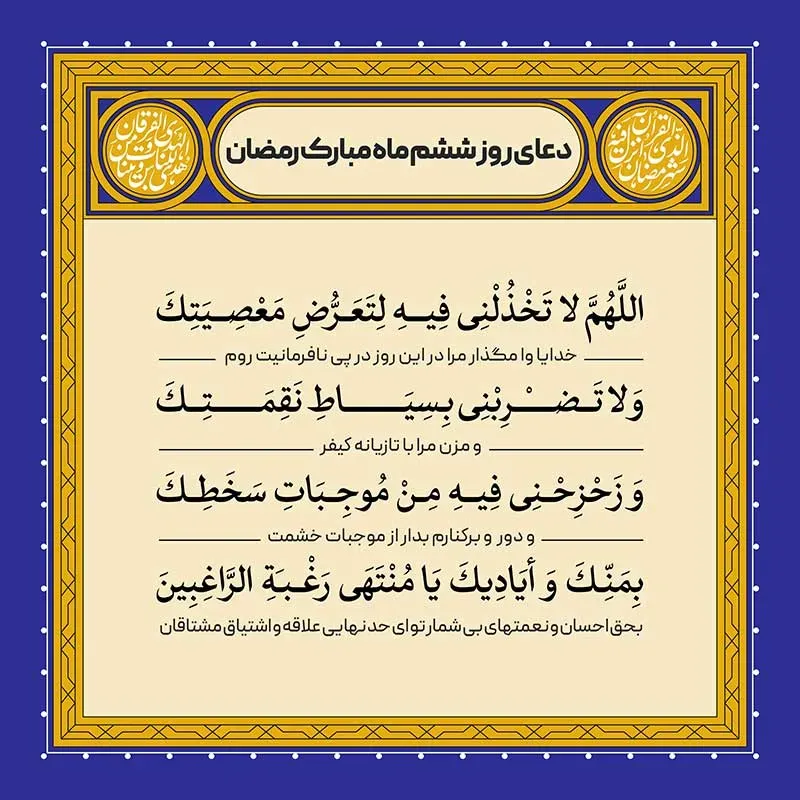 دعای روز ششم ماه مبارک رمضان
شهر رمضان الذی انزل فیه القرآن
هدی للناس و بینات من الهدی و الفرقان
اللَّهُمَّ لا تَخْذُلْنِی فِیهِ لِتَعَرُّضِ مَعْصِیَتِکَ
خدایا وا مگذار مرا در این روز در پی نافرمانیت روم
وَلا تَضْرِبْنِی بِسِیَاطِ نَقِمَتِکَ
و مزن مرا با تازیانه کیفر
وَ زَحْزِحْنِی فِیهِ مِنْ مُوجِبَاتِ سَخَطِکَ
و دور و برکنارم بدار از موجبات خشمت
بِمَنِّکَ وَ أَیَادِیکَ یَا مُنْتَهَی رَغْبَةِ الرَّاغِبِینَ
بحق احسان و نعمتهای بی شمار تو ای حد نهایی علاقه و اشتیاق مشتاقان